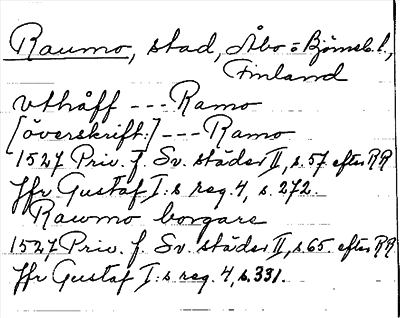 Raumo, stad, Åbo = Björneb. l.,
Finland
vthåff --- Ramo
[överskrift:] --- Ramo
1527 Priv. f. Sv. städer II, s. 57 efter RR
Jfr Gustaf I:s reg. 4, s. 272.
Rawmo borgare
1527 Priv. f. Sv. städer II, s. 65. efter RR
Jfr Gustaf I:s reg. 4, s. 331.